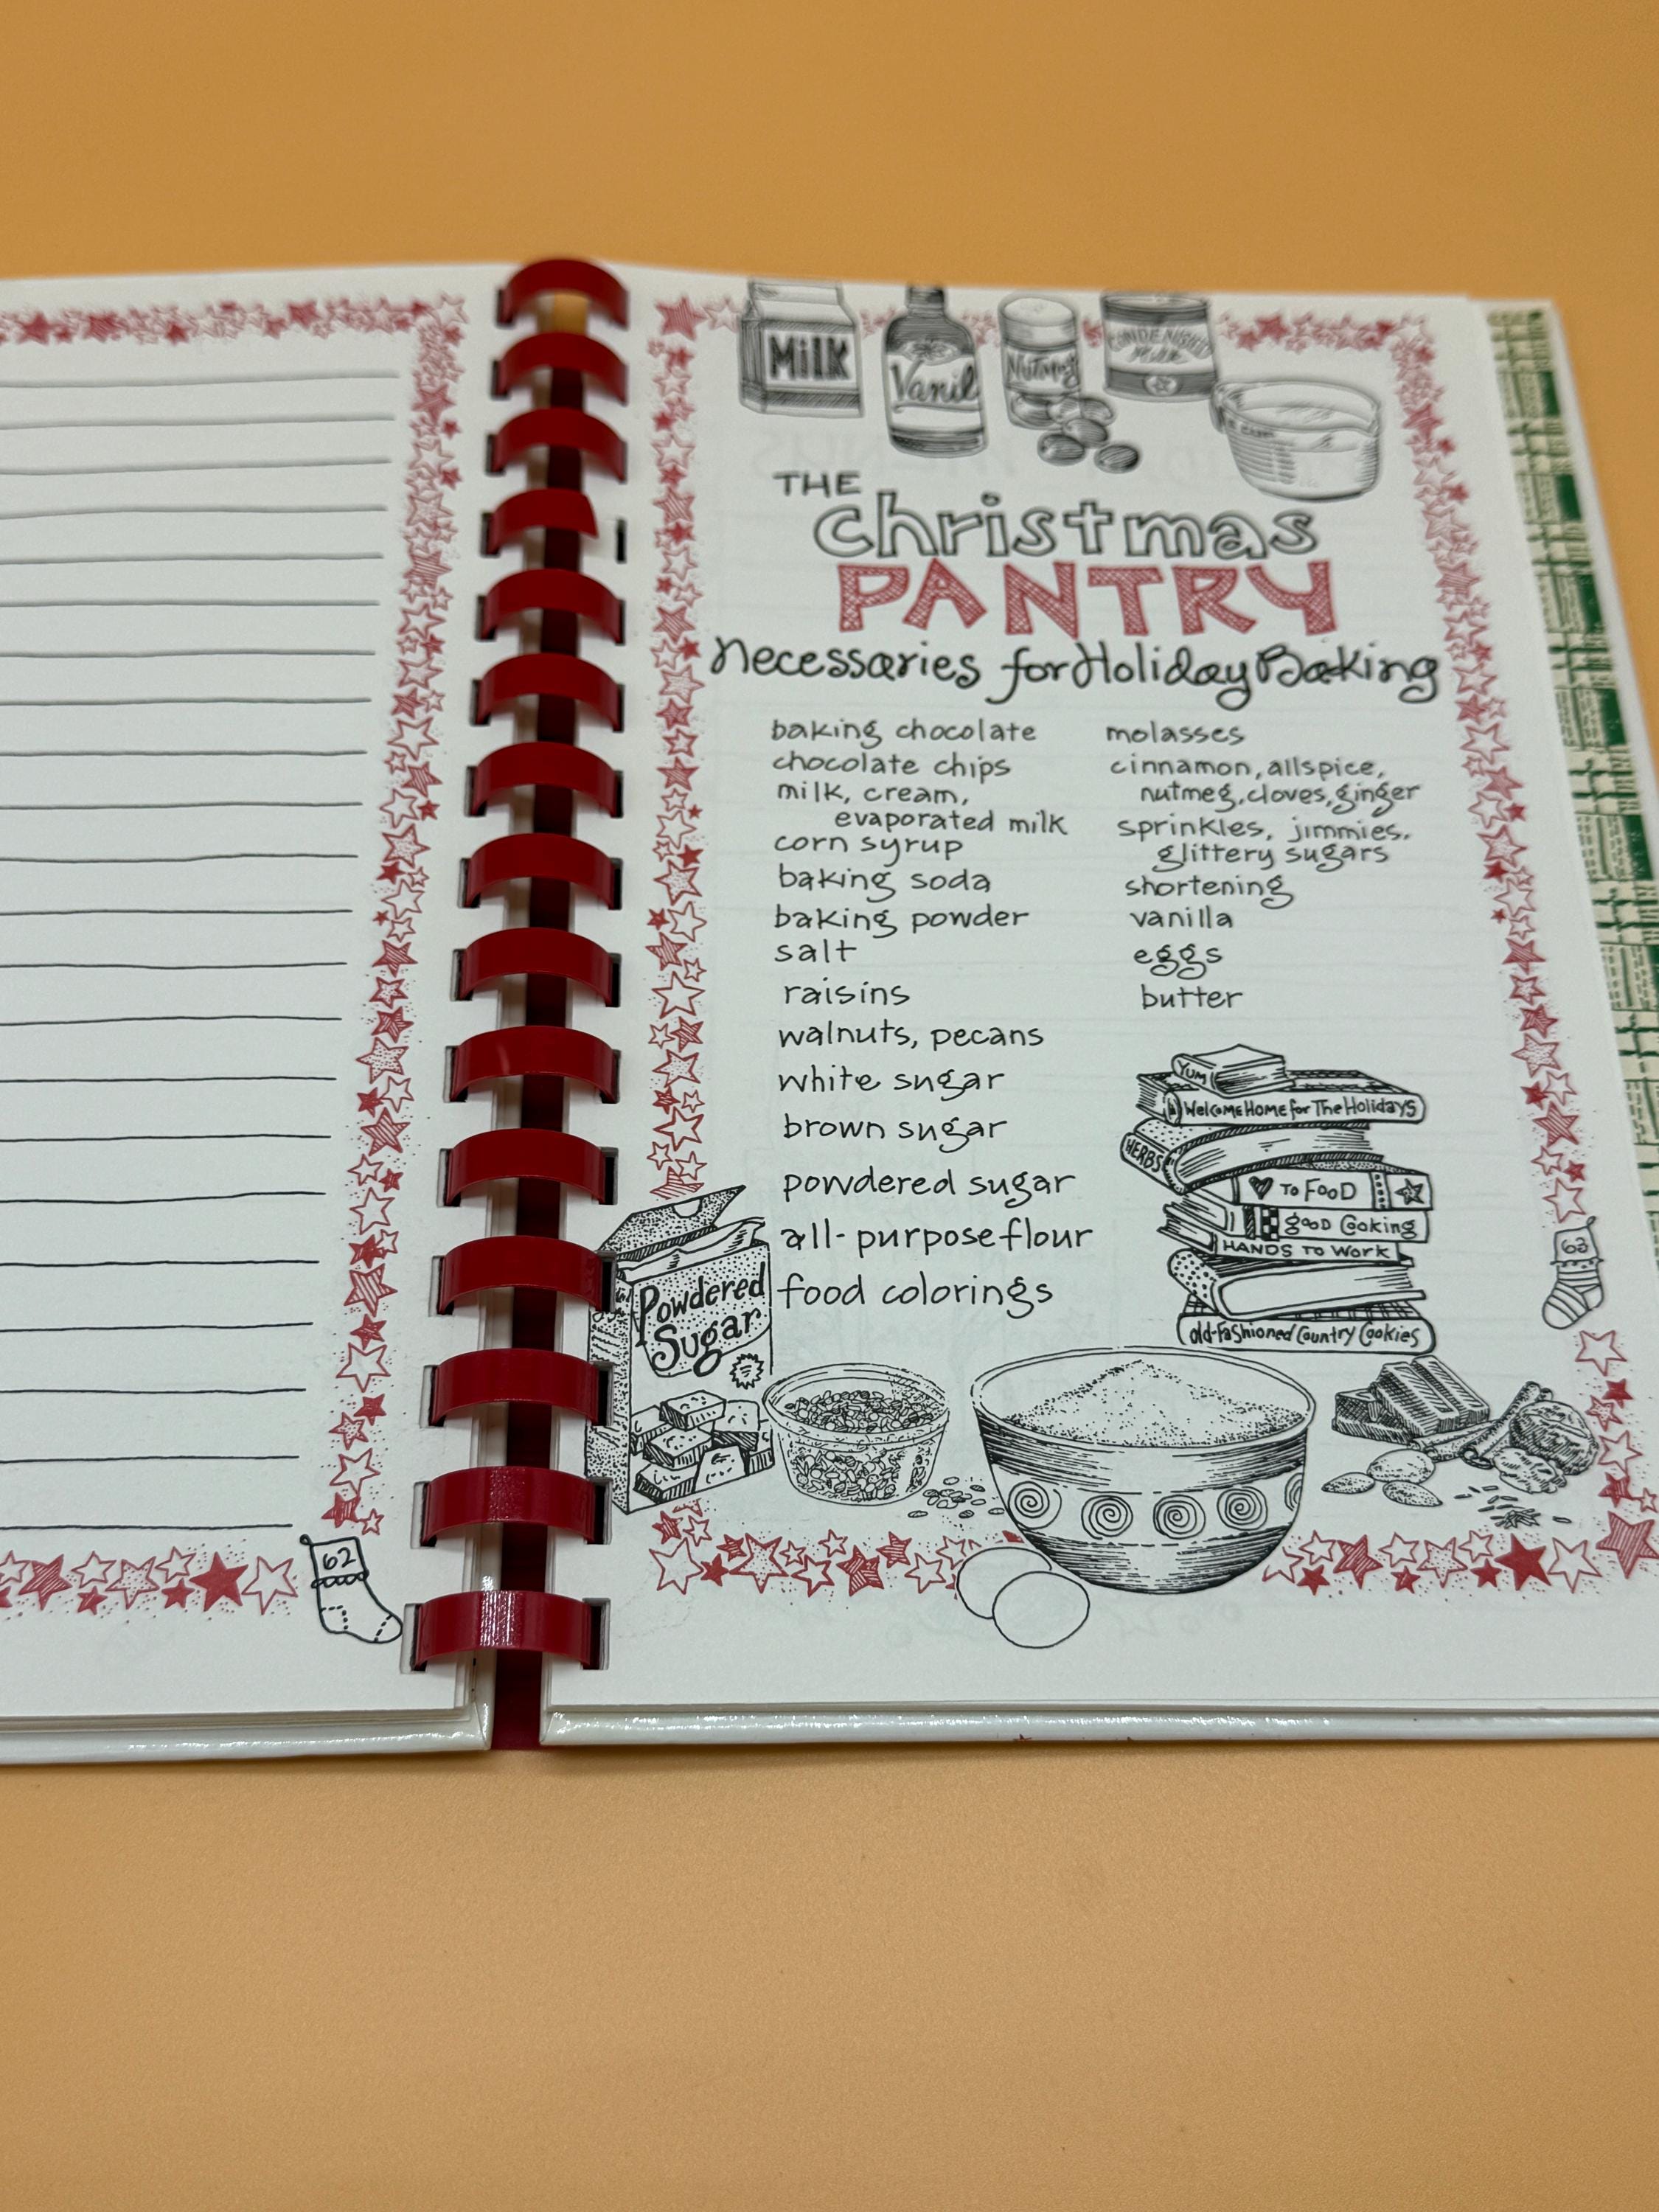 MiLK
Vanil
Nutmeg
CONDENSED
Milk
THE
christmas
PANTRY
Necessaries for Holiday Baking
baking chocolate
chocolate chips
milk, cream,
evaporated milk
corn syrup
baking soda
baking powder
salt
raisins
walnuts, pecans
white sugar
brown sugar
powdered sugar
all-purpose flour
food colorings
molasses
cinnamon, allspice,
nutmeg, cloves, ginger
sprinkles, jimmies,
glittery sugars
shortening
vanilla
eggs
butter
YUM
Welcome Home for The Holidays
HERBS
To FooD
gooD Cooking
HANDS To Work
Old-Fashioned Country Cookies
Powdered
Sugar
62
63